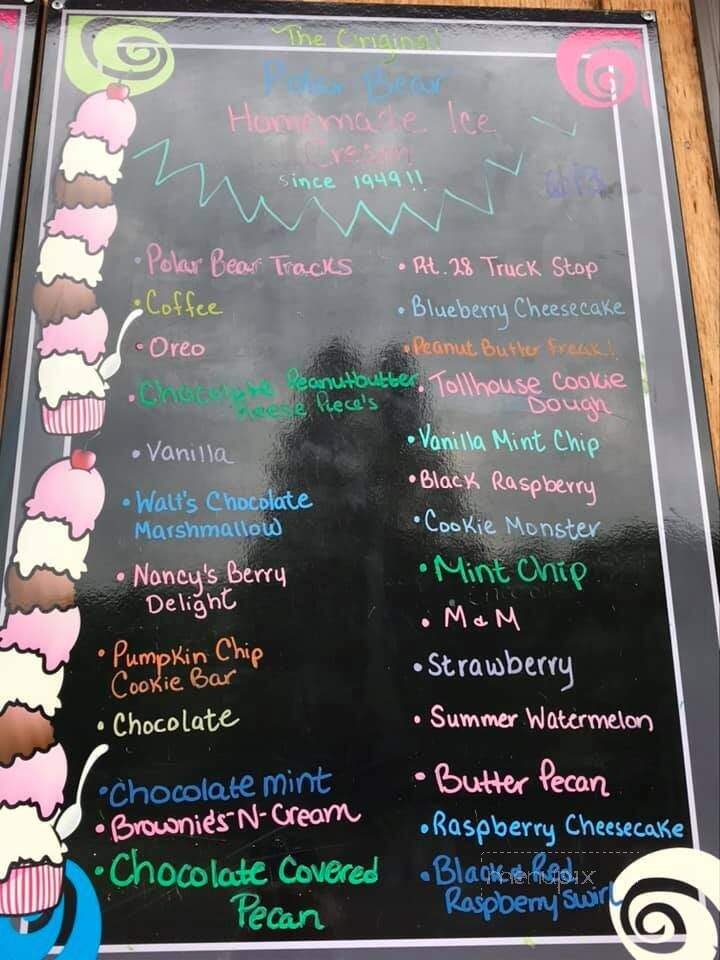 The Original
Polar Bear
Homemade Ice
Cream
since 1949!!
• Polar Bear Tracks
• Coffee
• Oreo
• Chocolate Peanutbutter
Reese Piece's
• Vanilla
• Walt's Chocolate
Marshmallow
• Nancy's Berry
Delight
• Pumpkin Chip
Cookie Bar
• Chocolate
• Chocolate mint
• Brownies-N-Cream
• Chocolate Covered
Pecan
• Rt. 28 Truck Stop
• Blueberry Cheesecake
• Peanut Butter Freak!
• Tollhouse Cookie
Dough
• Vanilla Mint Chip
• Black Raspberry
• Cookie Monster
• Mint Chip
• M & M
• Strawberry
• Summer Watermelon
• Butter Pecan
• Raspberry Cheesecake
• Black & Red
Raspberry Swirl
menupix